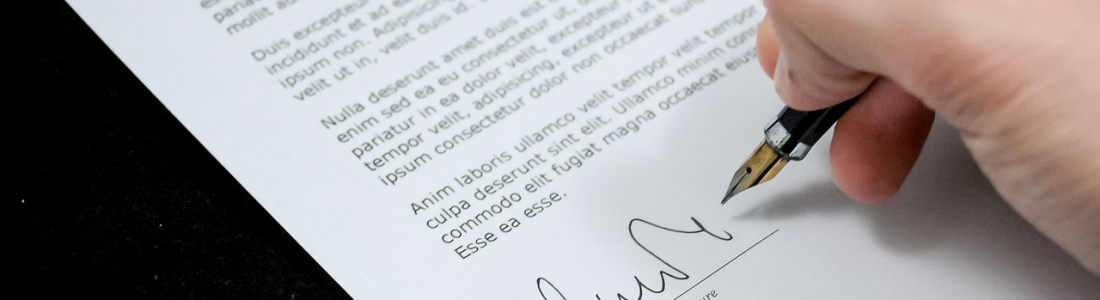 mollit
Duis excepteur
incididunt et ad
ipsum non. Adipisicing
velit ut in, velit duis id.
Nulla deserunt amet duis est
enim sed ea eu consectetur ut,
pariatur in ea dolor velit, excepteur
tempor velit, adipisicing, excepteur ut
ipsum consectetur dolor non occaecat sunt
Anim laboris ullamco velit tempor velit tempor
culpa deserunt sint elit. Ullamco minim
commodo elit fugiat magna occaecat
Esse ea esse.